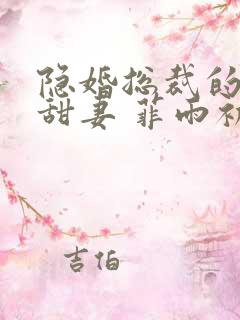 隐婚总裁的
甜妻 菲雨初
吉伯